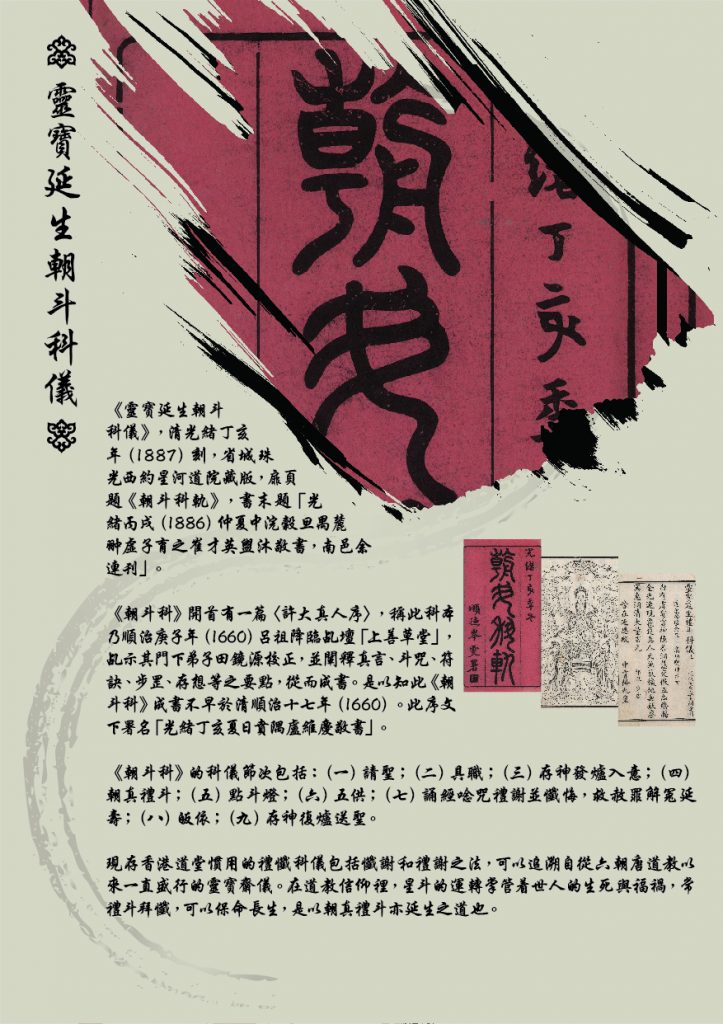 靈寶延生朝斗科儀
朝斗
緒丁亥季
《靈寶延生朝斗
科儀》，清光緒丁亥
年 (1887) 刻，省城珠
光西約星河道院藏版，扉頁
題《朝斗科軌》，書末題「光
緒丙戌 (1886) 仲夏中浣穀旦禺麓
翀虛子育之崔才英盥沐敬書，南邑余
連刊」。
《朝斗科》開首有一篇〈許大真人序〉，稱此科本
乃順治庚子年 (1660) 呂祖降臨乩壇「上善草堂」，
乩示其門下弟子田鏡源校正，並闡釋真言、斗咒、符
訣、步罡、存想等之要點，從而成書。是以知此《朝
斗科》成書不早於清順治十七年 (1660) 。此序文
下署名「光緒丁亥夏日賁隅盧維慶敬書」。
光緒丁亥季冬
朝斗科軌
順德麥雲署圖
《朝斗科》的科儀節次包括： (一) 請聖； (二) 具職； (三) 存神發爐入意； (四)
朝真禮斗； (五) 點斗燈； (六) 五供； (七) 誦經唸咒禮謝並懺悔，赦救罪解冤延
壽； (八) 皈依； (九) 存神復爐送聖。
現存香港道堂慣用的禮懺科儀包括懺謝和禮謝之法，可以追溯自從六朝唐道教以
來一直盛行的靈寶齋儀。在道教信仰裡，星斗的運轉掌管着世人的生死與福禍，常
禮斗拜懺，可以保命長生，是以朝真禮斗亦延生之道也。